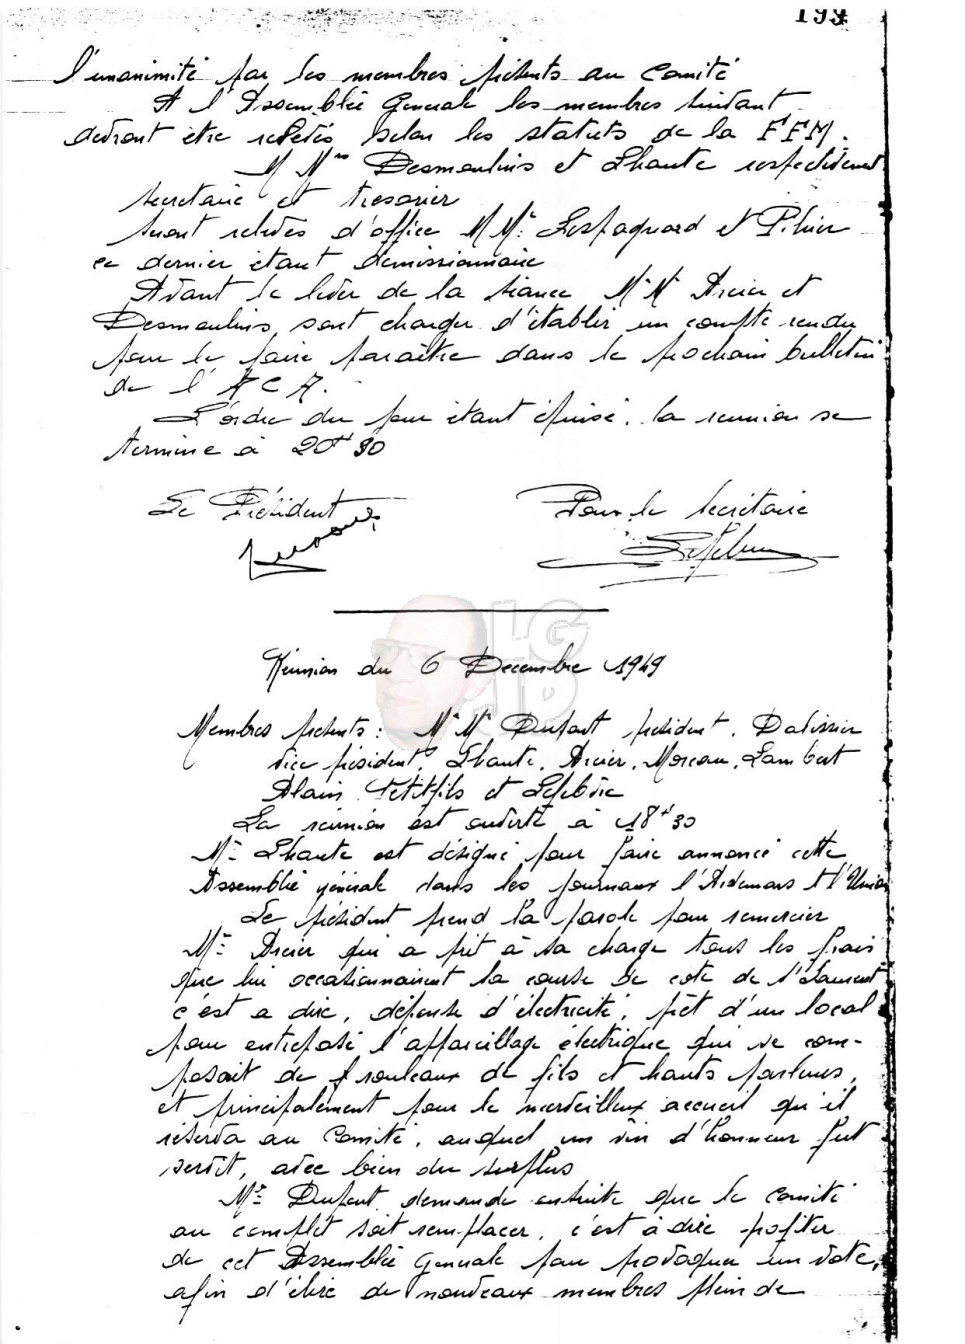 199
l'unanimité par les membres présents au Comité
A l'Assemblée Generale les membres suivant
devront être réélus selon les statuts de la F F M.
M Mrs Desmoulins et Lhaute respectivement
secretaire et tresorier
seront relevés d'office M Mr. Lespagnard et
ce dernier étant démissionnaire
Avant le lever de la séance Mr M Arcier et
Desmoulins, sont charger d'établir un compte rendu
pour le faire paraître dans le prochain bulletin
de l'A C A.
L'ordre du jour étant épuisé. la reunion se
termine à 20H 30
Le Président
Pour le Secrétaire
Lefebvre
LG
JD
Réunion du 6 Decembre 1949
Membres présents : Mr Mr Dupont président. Dalissier
vice président, Lhaute, Arcier, Moreau, Lambert
Alain Petitfils et Lefebvre
La réunion est ouverte à 18H30
Mr Lhaute est désigné pour faire annoncé cette
Assemblée générale dans les journaux l'Ardennais et l'Union
Le président prend la parole pour remercier
Mr Arcier qui a prit à sa charge tous les frais
que lui occasionnairent la course de cote de St Laurent
c'est a dire, dépense d'électricité, prêt d'un local
pour entreposé l'appareillage électrique qui se com-
posait de rouleaux de fils et hauts parleurs,
et principalement pour le merveilleux accueil qu'il
réserva au Comité, auquel un vin d'honneur fut
servit, avec bien du surplus
Mr Dupont demande ensuite que le comité
au complet soit remplacer, c'est à dire profiter
de cet Assemblée Generale pour provoquer un vote,
afin d'élire de nouveaux membres plein de